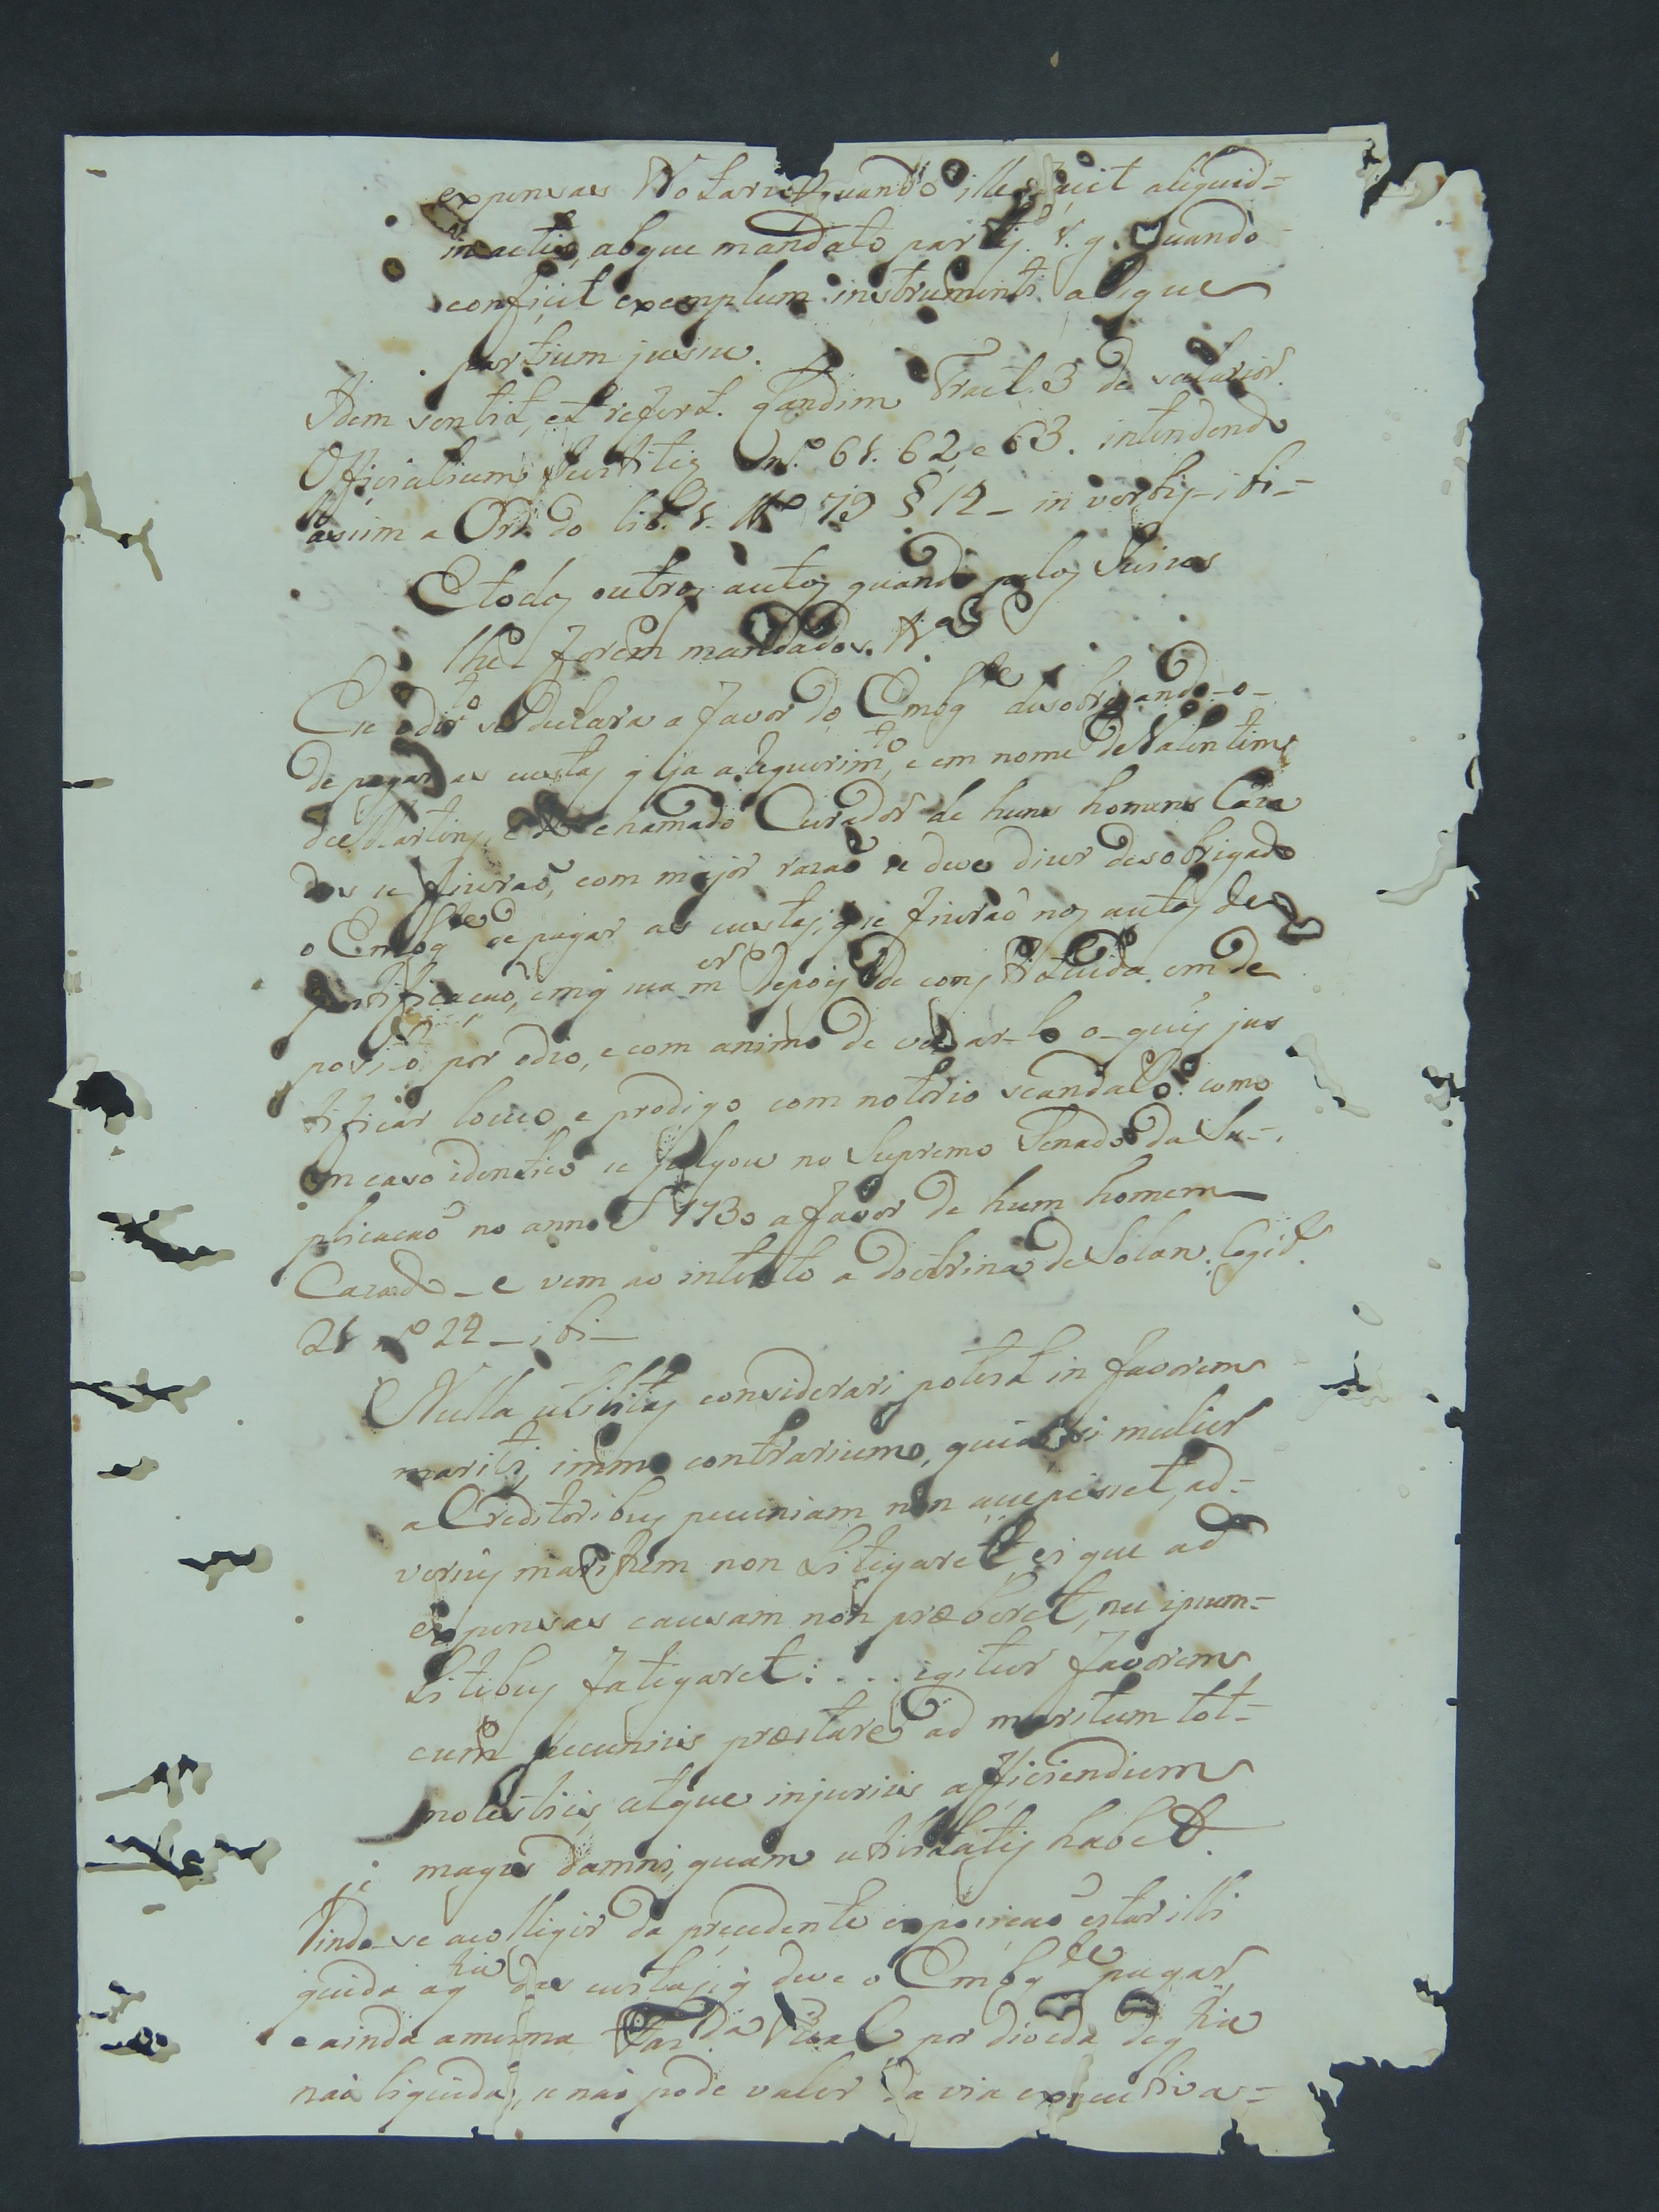 expensas Notarii quando ille facit aliquid=
in actis, absque mandato partis v. g. quando
conficit exemplum instrumenti absque
partium jussu.
Idem sentit, et refert. Tract. 3 de salarior.
Officialium Justitiæ n.º 61. 62, e 63. intendendo
assim a Ord. do lib. 1. tt.º 79 § 14 _ in verbis _ ibi =
E todos outros autos quando pelos Juizes
lhe forem mandados. &.ª
Se o dir.to se declara a favor do Embg.te desobrigando-o-
de pagar as custas q̃ ja a requerim.to, e em nome de Valentim
de Martins, chamado Curador de huns homens Caza
dos se fizeraõ, com major razaõ se deve dizer desobrigado
o Embg.te de pagar as custas, q̃ se fizeraõ nos autos de
justificaçaõ, em q̃ sua m.er depois de constituida em de
posito por odio, e com animo de o quis jus
tificar louco, e prodigo com notorio scandalo. como
em caso identico se julgou no Supremo Senado da Su=
plicaçaõ no anno 1730 a favor de hum homem
Cazado _ e vem ao intento a doctrina de Solan. Cogit.
21 n.º 24 _ ibi _
Nulla utilitas considerari potest in favorem
mariti, immo contrarium, quia si mulier
a Creditoribus pecuniam non accepisset, ad=
versus maritum non litigaret, ei que ad
expensas causam non præberet, nec ipsum=
litibus fatigaret: . . . igitur favorem
cum pecuniis præstare ad maritum tot=
molestiis, atque injuriis afficiendum
magis damni, quam utilitatis habet.
Vindo-se a colligir da precedente expoziçaõ estar illi
quida a q.tia das custas, q̃ deve o Embg.te pagar,
e ainda a mesma Faz.da Real por divida de q.tia
naõ liquida, se naõ pode valer da via executiva =